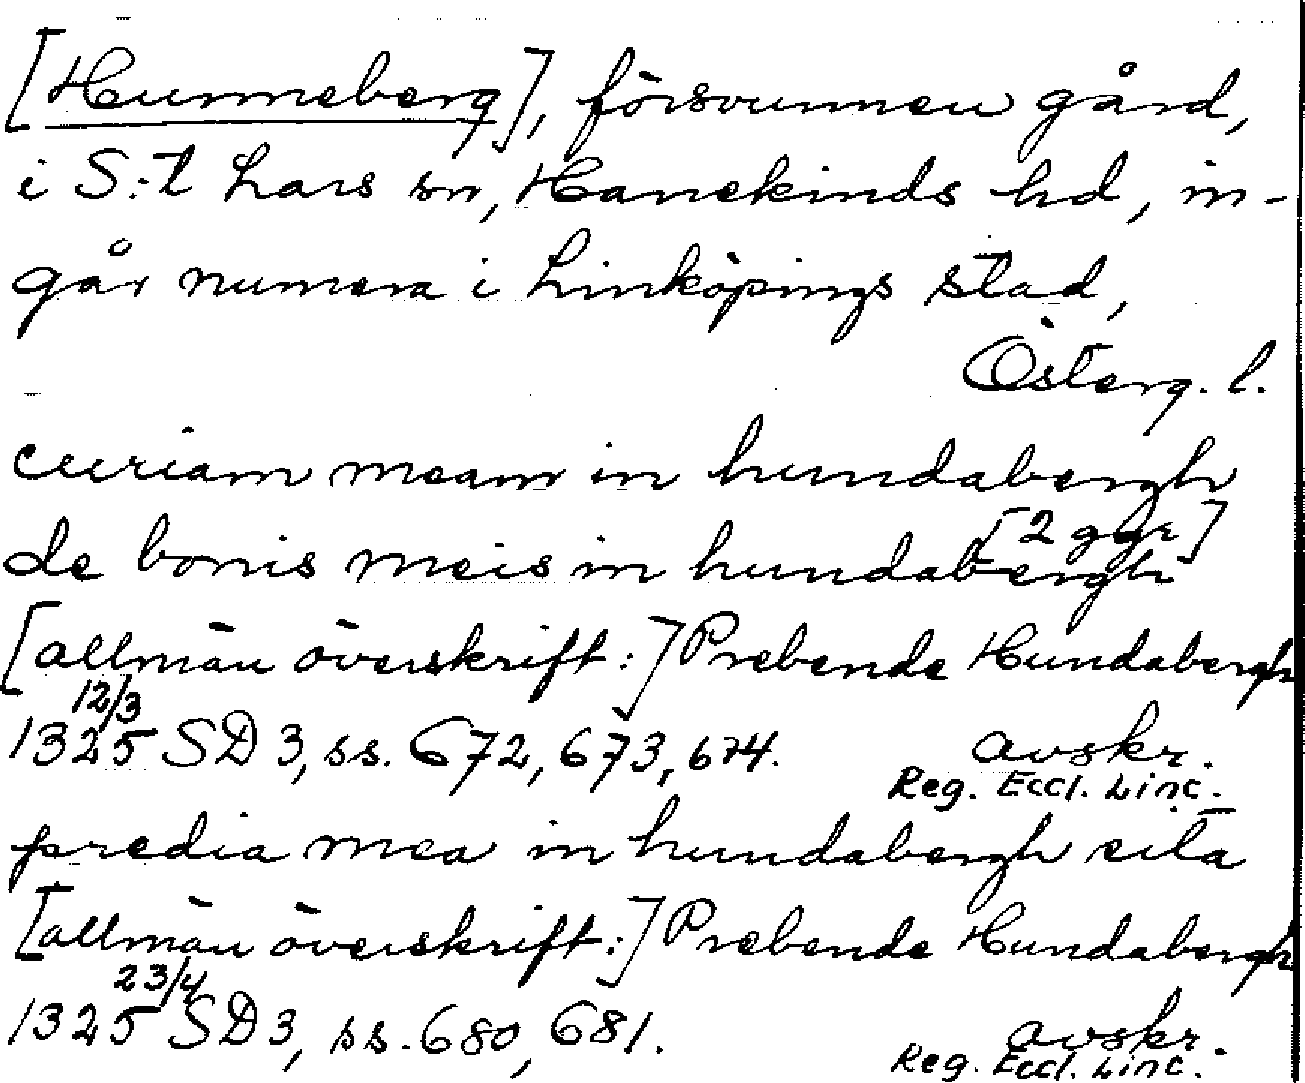 [Hunneberg], försvunnen gård,
i S:t Lars sn, Hanekinds hd, in-
går numera i Linköpings stad,
Österg. l.
curiam meam in hundabergh
[2 ggr]
de bonis meis in hundabergh
[allmän överskrift:] Prebende Hundabergh
12/3
1325 SD 3, ss. 672, 673, 674. avskr.
Reg. Eccl. Linc.
predia mea in hundabergh sita
[allmän överskrift:] Prebende Hundabergh
23/4
1325 SD 3, ss. 680, 681. avskr.
Reg. Eccl. Linc.